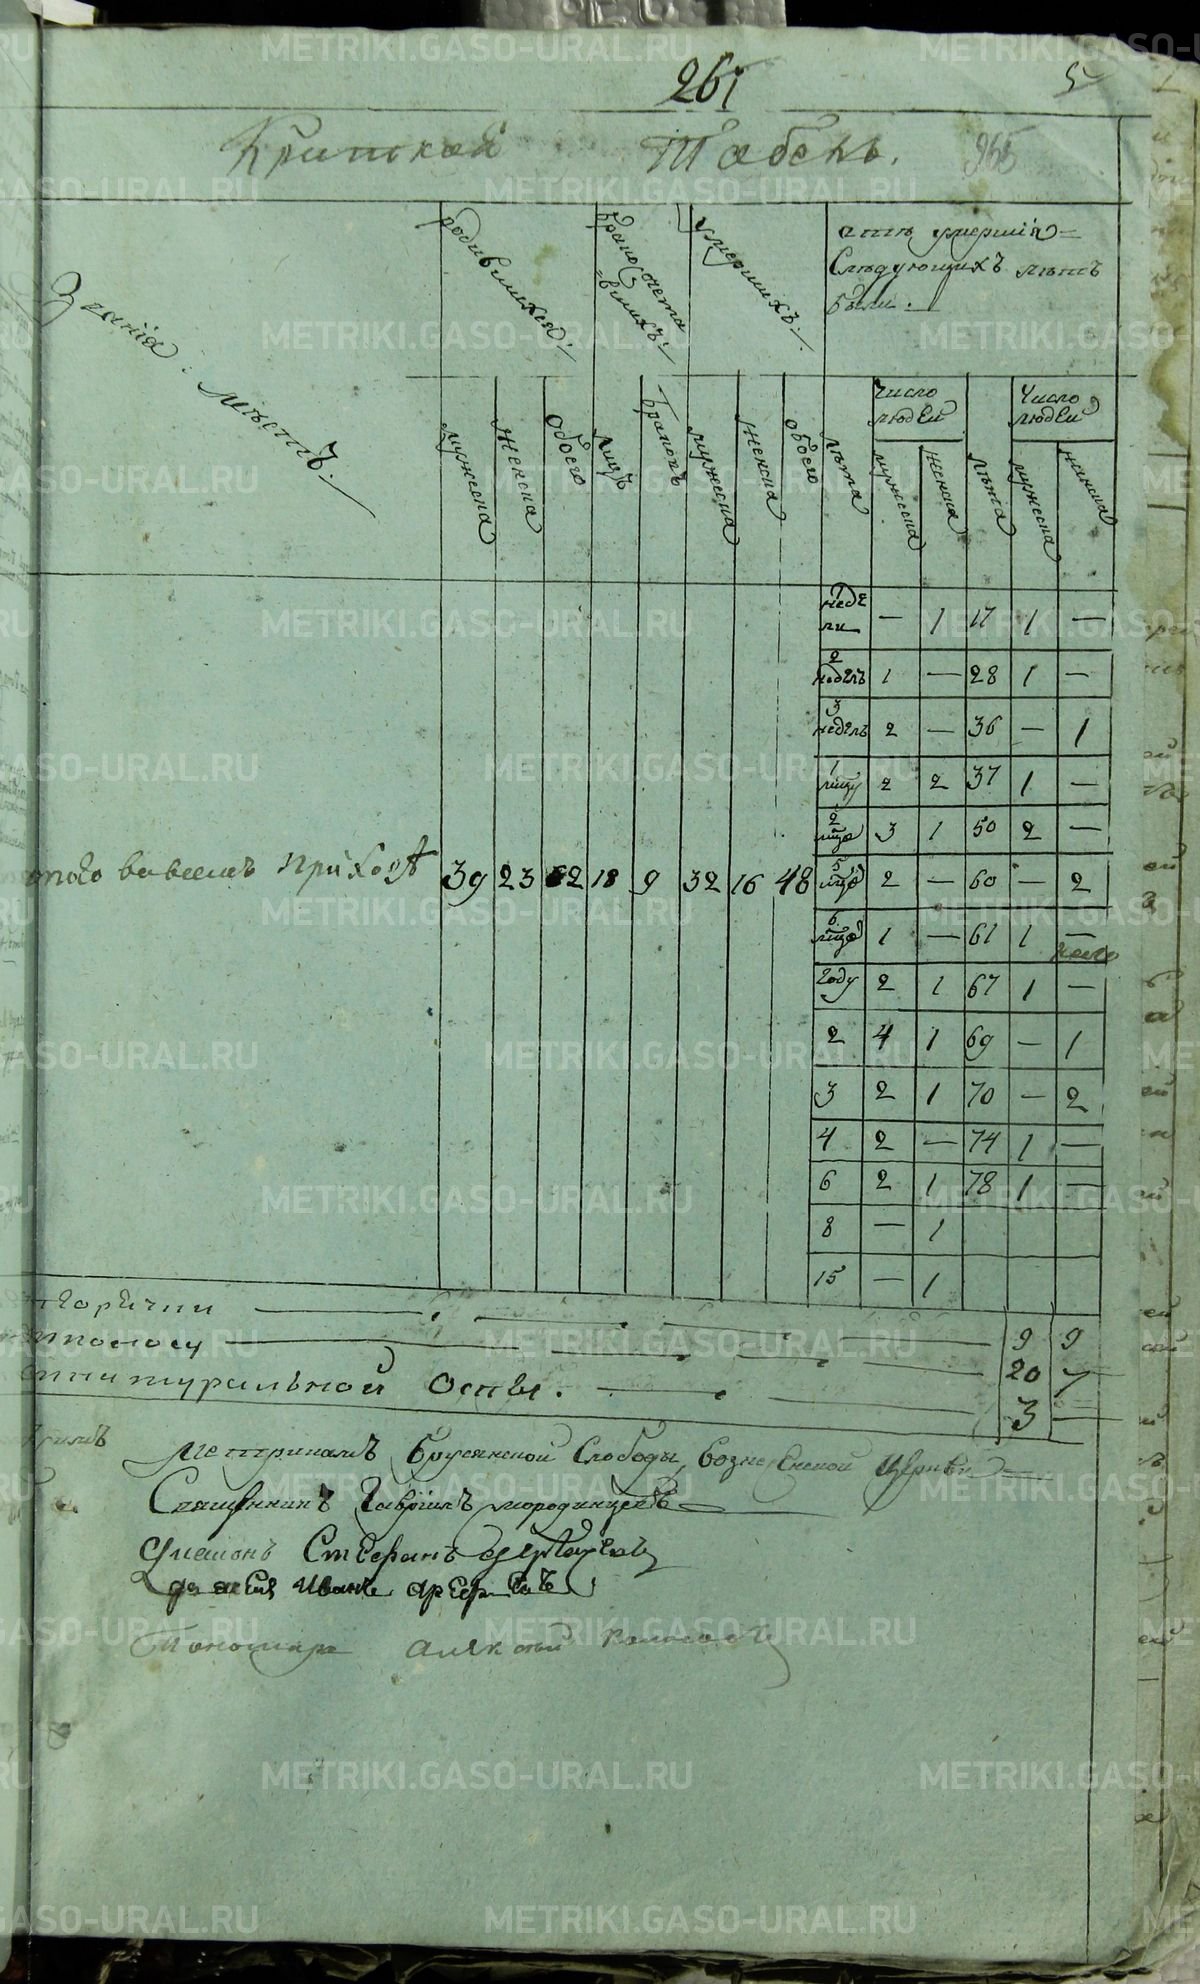 261
5
Краткая Табель.
265
Званія мѣстъ.
родившихся:
бракосочета
=вшихъ:
умершихъ:
Изъ умершихъ
слѣдующихъ лѣтъ
были.
мужеска
женска
обоего
лицъ
браковъ
мужеска
женска
обоего
лѣта
Число людей
мужеска
женска
лѣта
Число людей
мужеска
женска
1 недели — 1 17 1 —
2 недель 1 — 28 1 —
3 недель 2 — 36 — 1
1 мцу 2 2 37 1 —
2 мца 3 1 50 2 —
во всемъ приходѣ 39 23 62 18 9 32 16 48
5 мцъ 2 — 60 — 2
6 мцъ 1 — 61 1 —
году 2 1 67 1 —
2 4 1 69 — 1
3 2 1 70 — 2
4 2 — 74 1 —
6 2 1 78 1 —
8 — 1
15 — 1
горячки 9 9
поносу 20 7
натуральной оспы. 3 —
метрикамъ Брусянской Слободы, Вознесенской церкви
Священникъ Гавріилъ
Диаконъ Стефанъ
Иванъ
Пономарь Алексей
METRIKI.GASO-URAL.RU